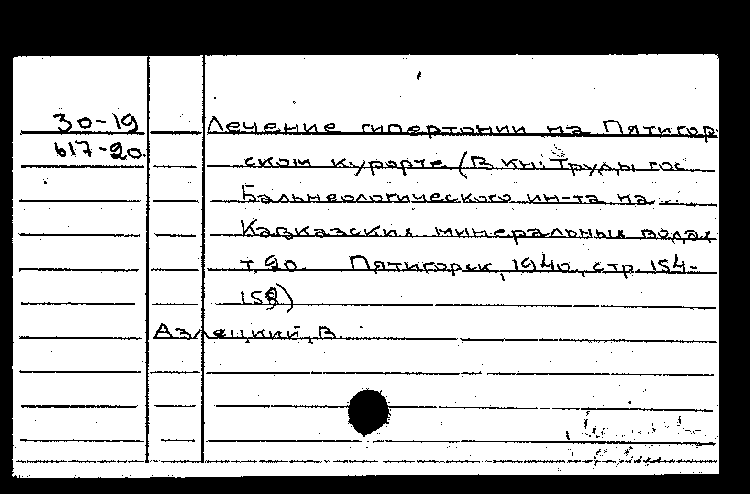 30-19 Лечение гипертонии на Пятигор-
617-20 ском курорте (В кн: Труды гос.
Бальнеологического ин-та на
Кавказских минеральных водах
т. 20. Пятигорск, 1940, стр. 154-
158)
Азлецкий, В.